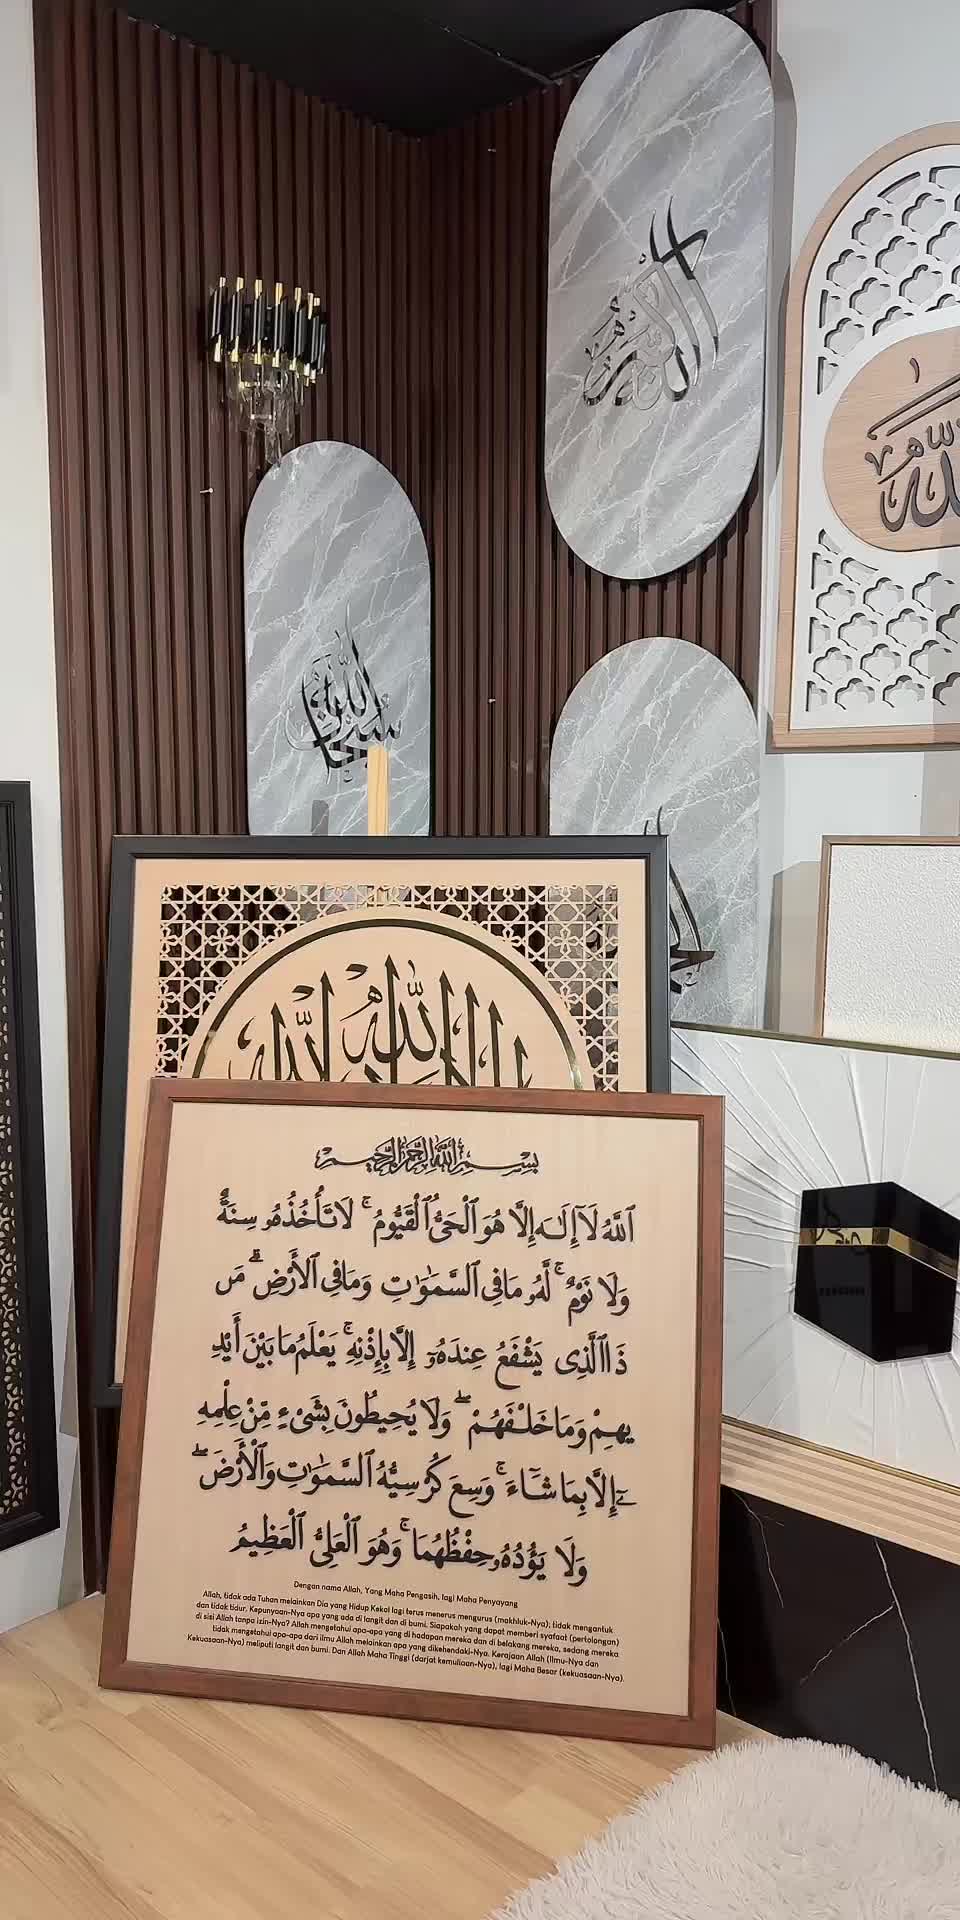 الله أكبر
سبحان الله
الله
بسم الله الرحمن الرحيم
ٱللَّهُ لَآ إِلَـٰهَ إِلَّا هُوَ ٱلْحَىُّ ٱلْقَيُّومُ ۚ لَا تَأْخُذُهُۥ سِنَةٌ
وَلَا نَوْمٌ ۚ لَّهُۥ مَا فِى ٱلسَّمَـٰوَٰتِ وَمَا فِى ٱلْأَرْضِ ۗ مَن
ذَا ٱلَّذِى يَشْفَعُ عِندَهُۥٓ إِلَّا بِإِذْنِهِۦ ۚ يَعْلَمُ مَا بَيْنَ أَيْدِ
يهِمْ وَمَا خَلْفَهُمْ ۖ وَلَا يُحِيطُونَ بِشَىْءٍ مِّنْ عِلْمِهِ
ۦٓ إِلَّا بِمَا شَآءَ ۚ وَسِعَ كُرْسِيُّهُ ٱلسَّمَـٰوَٰتِ وَٱلْأَرْضَ ۖ
وَلَا يَـُٔودُهُۥ حِفْظُهُمَا ۚ وَهُوَ ٱلْعَلِىُّ ٱلْعَظِيمُ
Dengan nama Allah, Yang Maha Pengasih, lagi Maha Penyayang
Allah, tidak ada Tuhan melainkan Dia yang Hidup Kekal lagi terus menerus mengurus (makhluk-Nya); tidak mengantuk
dan tidak tidur. Kepunyaan-Nya apa yang ada di langit dan di bumi. Siapakah yang dapat memberi syafaat (pertolongan)
di sisi Allah tanpa izin-Nya? Allah mengetahui apa-apa yang di hadapan mereka dan di belakang mereka, sedang mereka
tidak mengetahui apa-apa dari ilmu Allah melainkan apa yang dikehendaki-Nya. Kerajaan Allah (Ilmu-Nya dan
Kekuasaan-Nya) meliputi langit dan bumi. Dan Allah Maha Tinggi (darjat kemuliaan-Nya), lagi Maha Besar (kekuasaan-Nya).